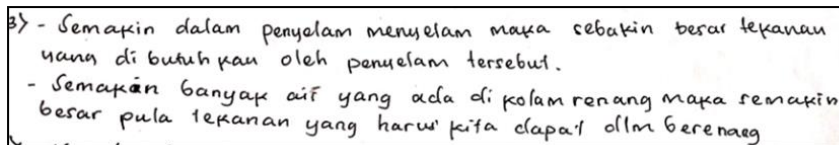 3) - Semakin dalam penyelam menyelam maka sebakin besar tekanan
yang di butuh kan oleh penyelam tersebut.
- Semakin banyak air yang ada di kolam renang maka semakin
besar pula tekanan yang harus kita dapat dlm berenaeg